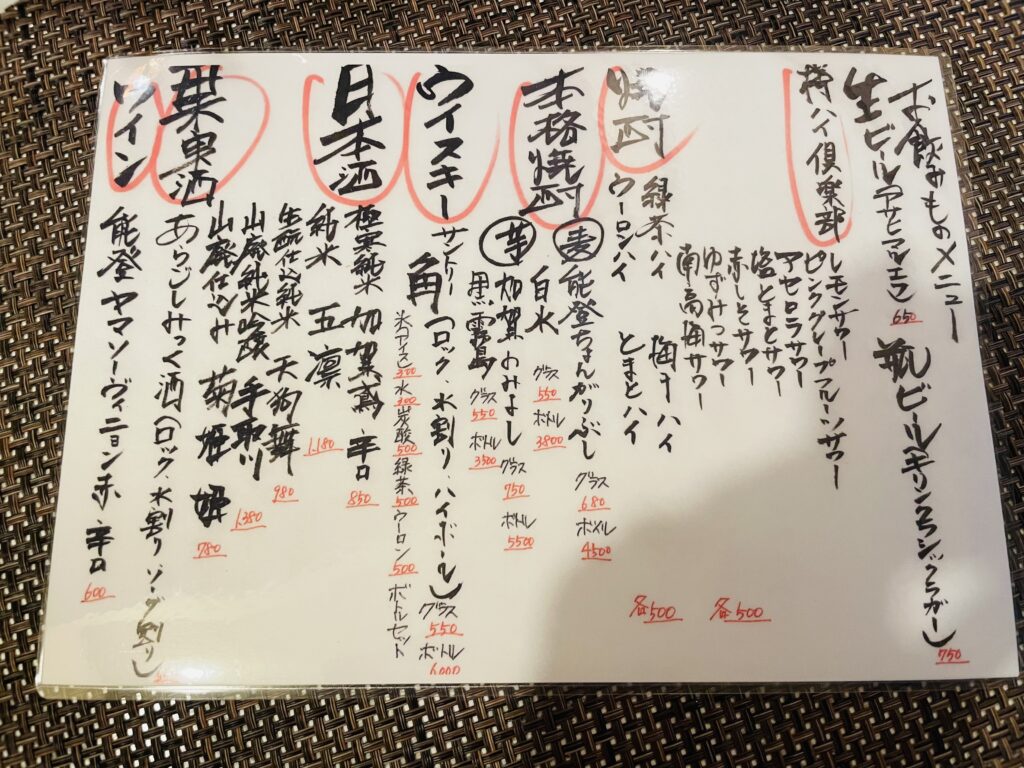 お飲みものメニュー
生ビール(アサヒマルエフ) 650
瓶ビール(キリンクラシックラガー) 750
酎ハイ倶楽部
レモンサワー
ピンクグレープフルーツサワー
アセロラサワー
塩とまとサワー
赤しそサワー
ゆずみつサワー
南高梅サワー
各500
焼酎
緑茶ハイ 梅干ハイ
ウーロンハイ とまとハイ
各500
本格焼酎
麦 能登ちょんがりぶし グラス 680 ボトル 4500
白水 グラス 550 ボトル 3800
芋 加賀のみよし グラス 750 ボトル 5500
黒霧島 グラス 550 ボトル 3500
ウイスキー
サントリー
角(ロック、水割り、ハイボール) グラス 550 ボトル 6000
ボトルセット
氷 300 水 300 炭酸 500 緑茶 500 ウーロン 500
日本酒
極寒純米 加賀鳶 辛口 850
純米 五凛 1,180
生酛仕込純米 天狗舞 980
山廃純米吟醸 手取川 1,380
山廃仕込み 菊姫 780
果実酒
あらごしみっく酒(ロック、水割り ソーダ割り)
ワイン
能登ヤマソーヴィニョン赤 辛口 600